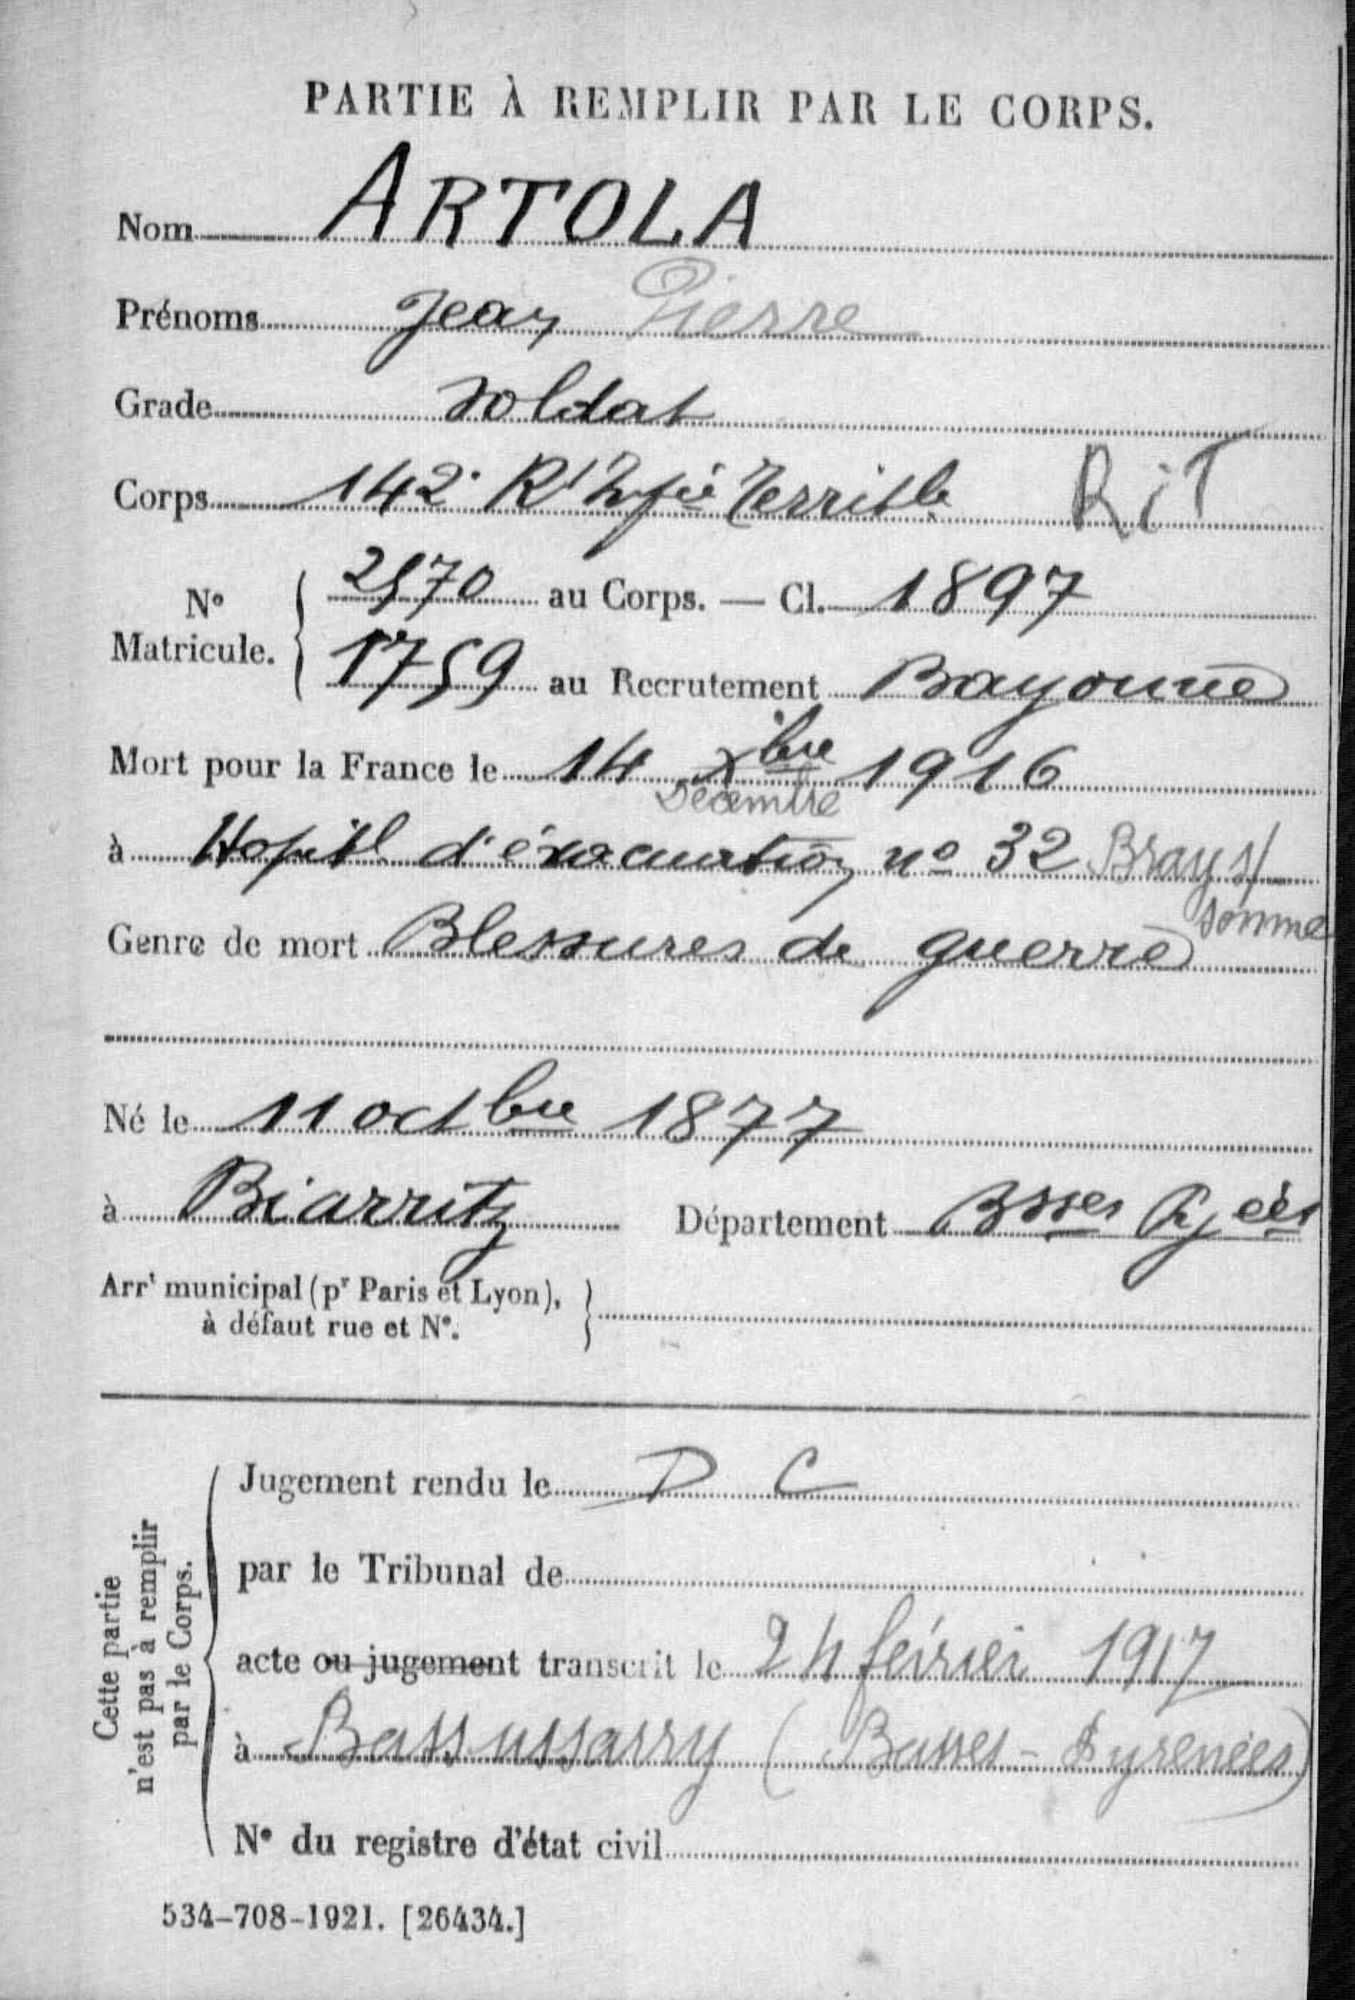 PARTIE À REMPLIR PAR LE CORPS.
Nom ARTOLA
Prénoms Jean Pierre
Grade Soldat
Corps 142e Rt Infie Territle RiT
No Matricule. { 2570 au Corps. — Cl. 1897
1759 au Recrutement Bayonne
Mort pour la France le 14 Xbre 1916
Décembre
à Hopital d'évacuation no 32 Bray s/
Somme
Genre de mort Blessures de guerre
Né le 11 octbre 1877
à Biarritz Département Bsses Pyées
Arrt municipal (pr Paris et Lyon),
à défaut rue et No. }
Cette partie
n'est pas à remplir
par le Corps.
Jugement rendu le D C
par le Tribunal de
acte ou jugement transcrit le 24 février 1917
à Bassussarry (Basses-Pyrenées)
No du registre d'état civil
534-708-1921. [26434.]